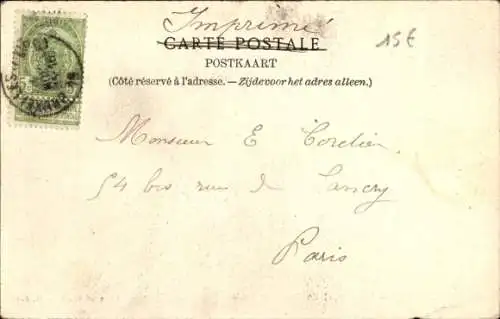 Imprimé
CARTE POSTALE
15€
POSTKAART
(Côté réservé à l'adresse. — Zijde voor het adres alleen.)
BRUXELLES
Monsieur E Cordier
54 bis rue de Lancry
Paris